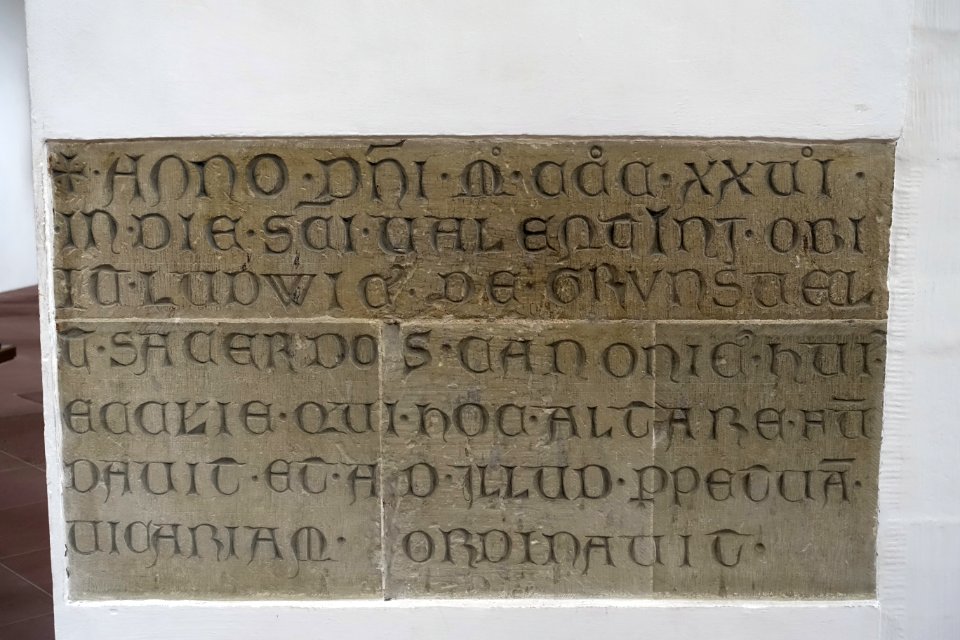 ✠ ANNO · DN̄I · M̊ · CC̊C̊ · XXVI̊ ·
IN · DIE · SC̄I · VALENTINI · OBI
IT · LUDWIC · DE · GRVNSTEL
T · SACERDOS · CANONIC̊ · HUI
ECCL̄IE · QUI · HOC · ALTARE · FŪ
DAVIT · ET · AD · ILLUD · P̱PETUĀ ·
VICARIAM · ORDINAVIT ·